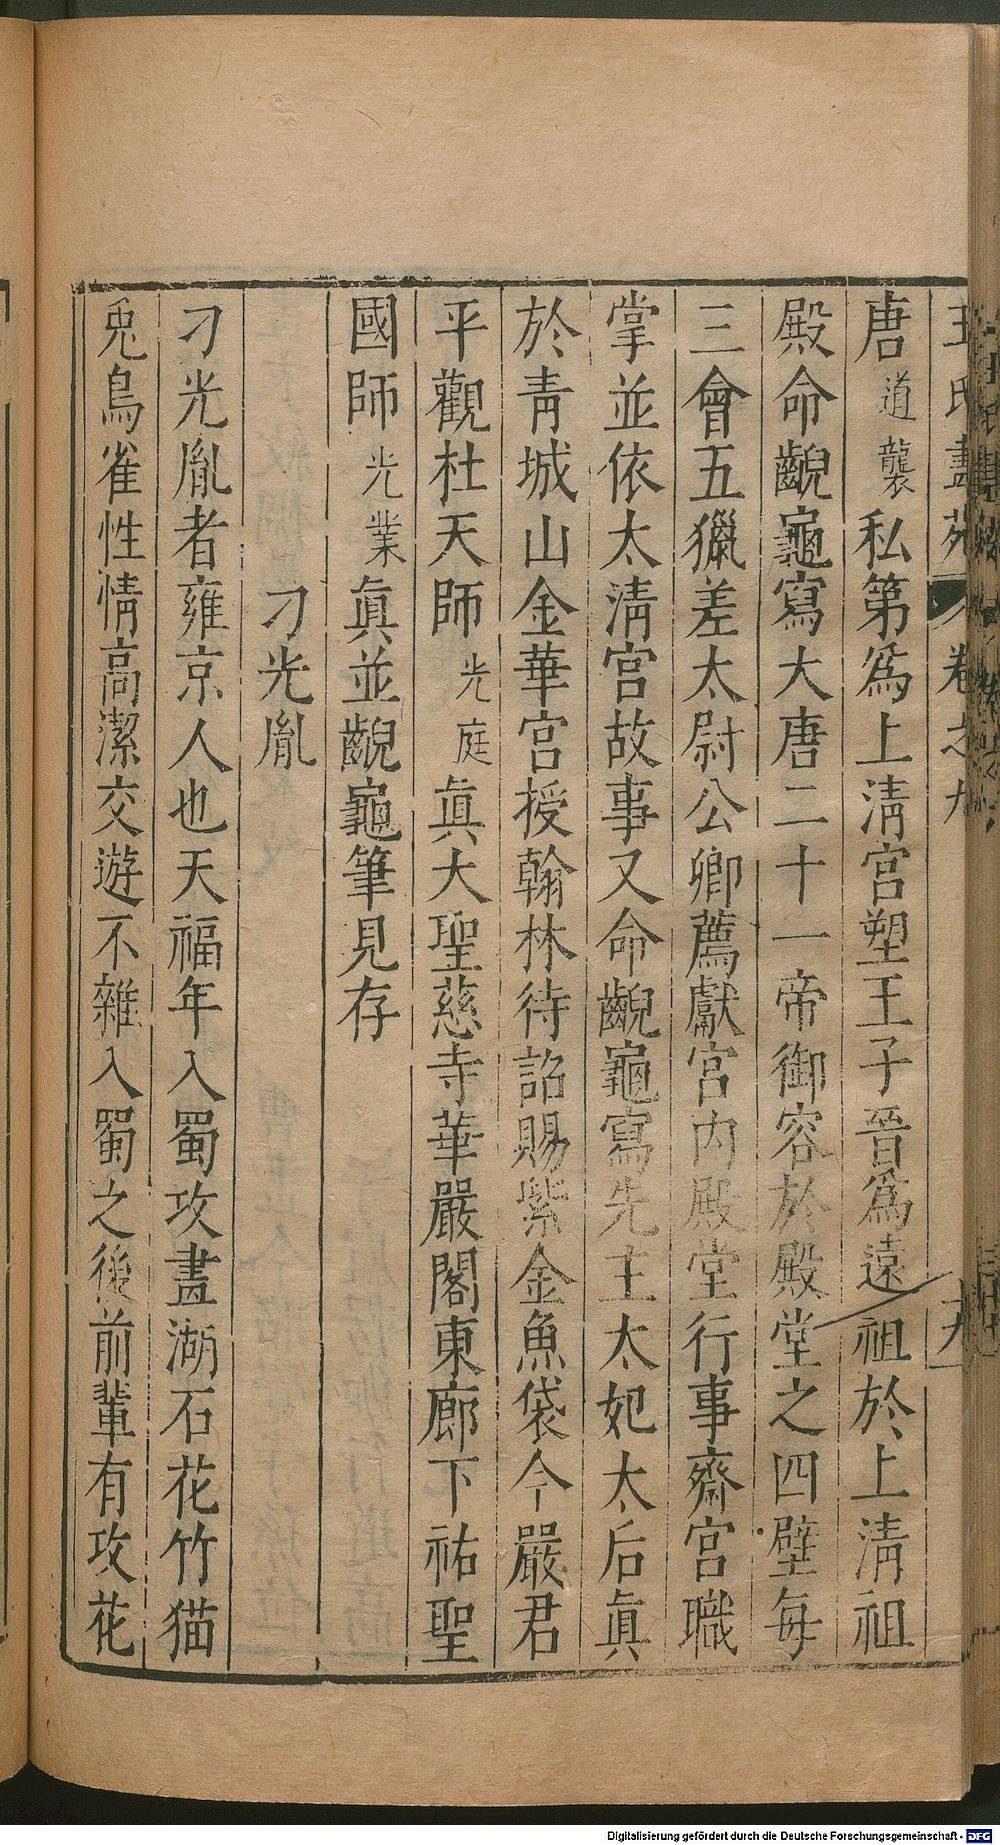 王氏畫苑 卷之九 十九
唐道襲私第爲上淸宮塑王子晉爲遠祖於上淸祖
殿命齯龜寫大唐二十一帝御容於殿堂之四壁每
三會五獵差太尉公卿薦獻宮內殿堂行事齋宮職
掌並依太淸宮故事又命齯龜寫先王太妃太后眞
於靑城山金華宮授翰林待詔賜紫金魚袋今嚴君
平觀杜天師光庭眞大聖慈寺華嚴閣東廊下祐聖
國師光業眞並齯龜筆見存
刁光胤
刁光胤者雍京人也天福年入蜀攻畫湖石花竹猫
兎鳥雀性情高潔交遊不雜入蜀之後前輩有攻花
Digitalisierung gefördert durch die Deutsche Forschungsgemeinschaft - DFG